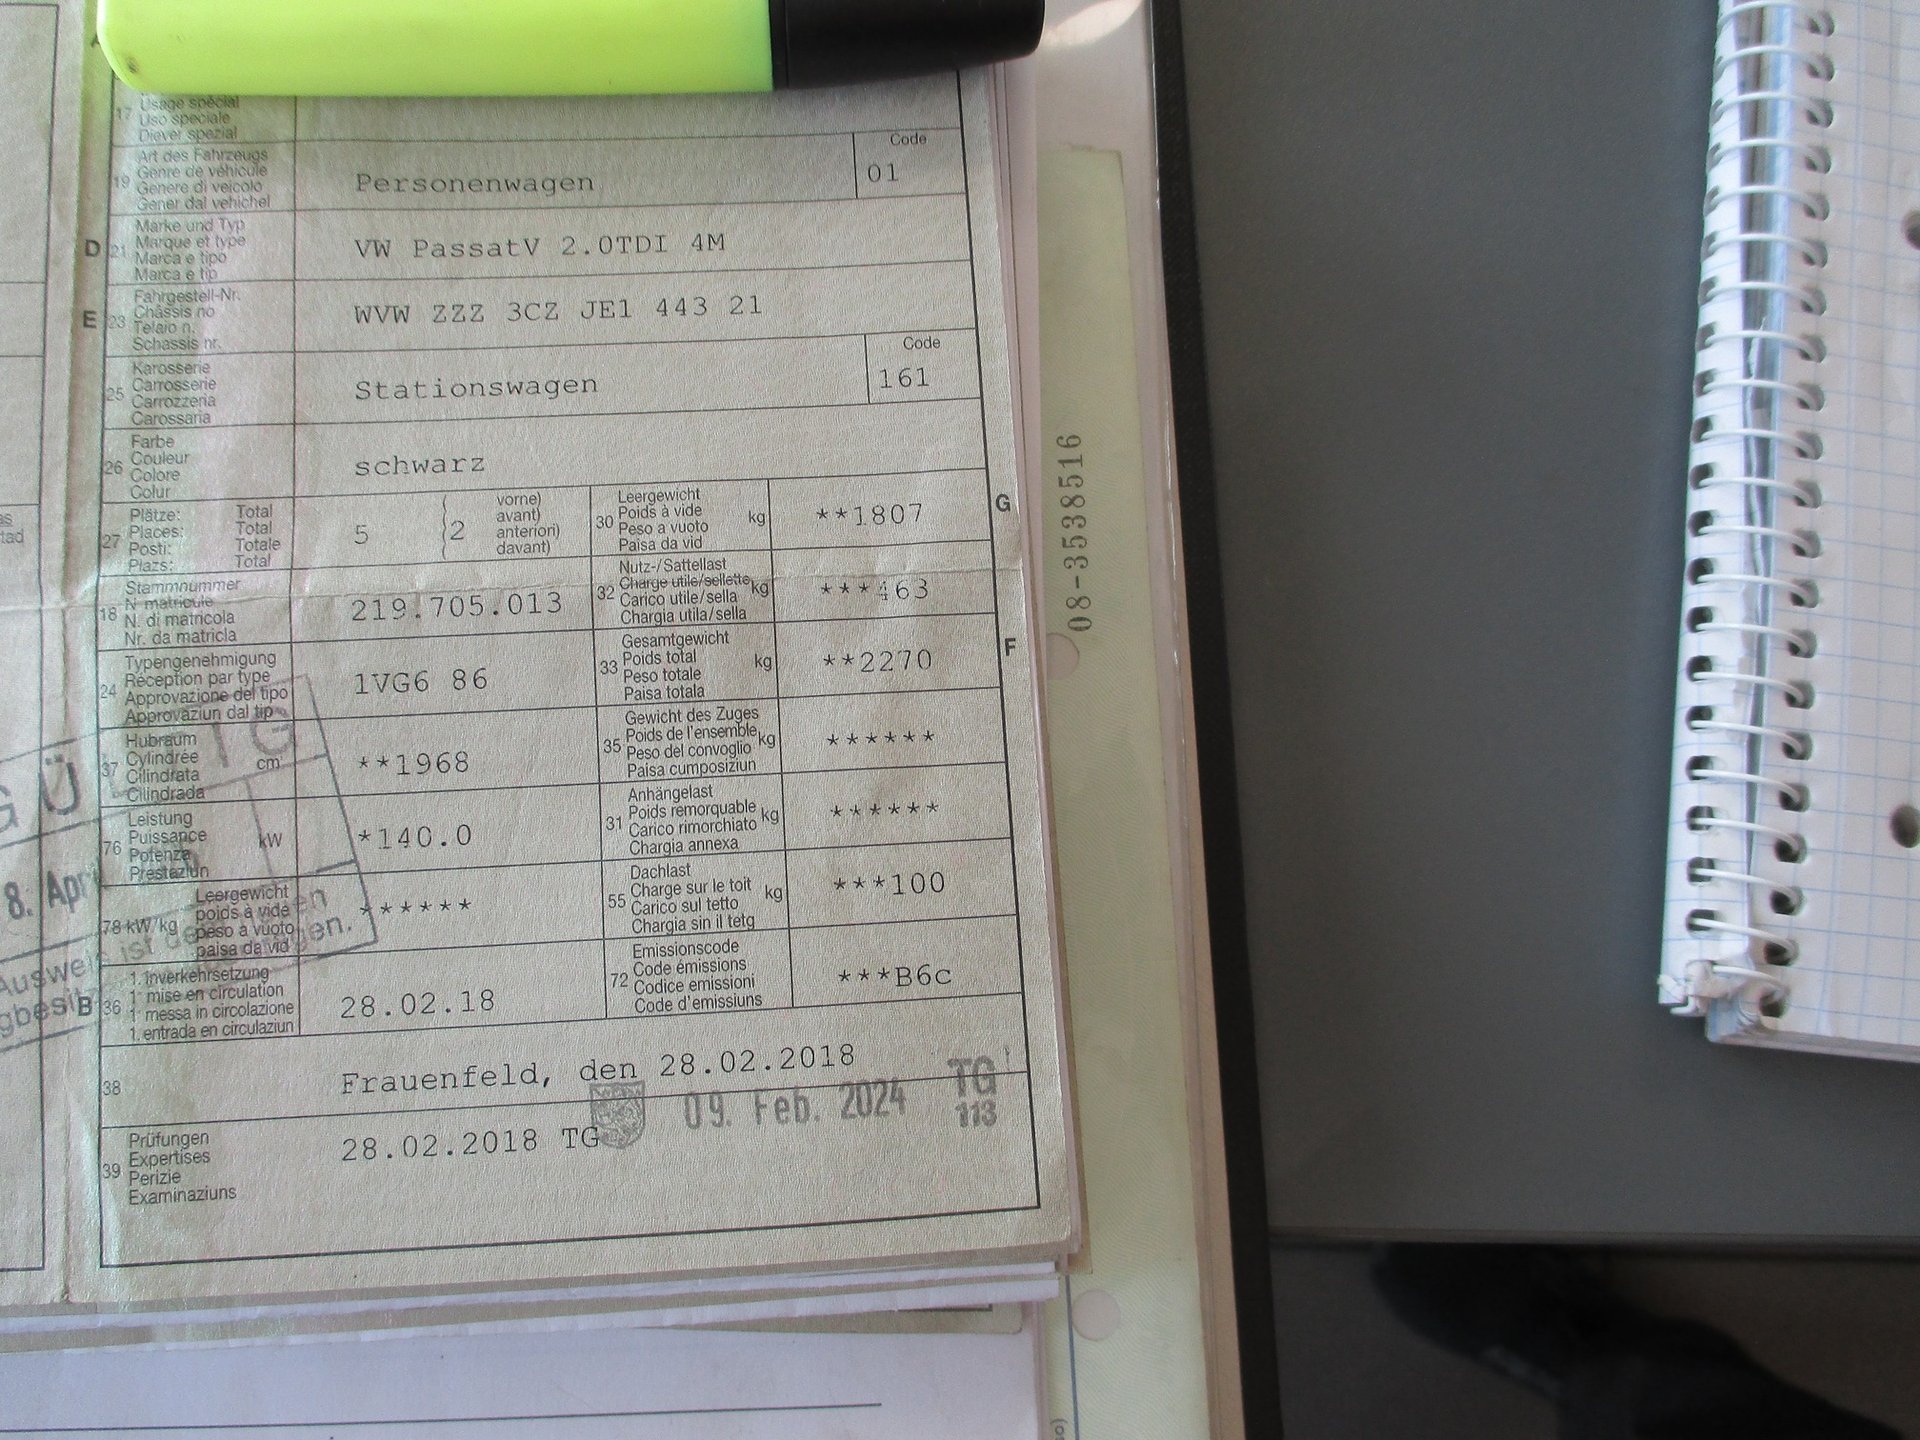 17 Usage spécial
Uso speciale
Diever spezial
19 Art des Fahrzeugs
Genre de véhicule
Genere di veicolo
Gener dal vehichel
Personenwagen
Code
01
D 21 Marke und Typ
Marque et type
Marca e tipo
Marca e tip
VW PassatV 2.0TDI 4M
E 23 Fahrgestell-Nr.
Châssis no
Telaio n.
Schassis nr.
WVW ZZZ 3CZ JE1 443 21
25 Karosserie
Carrosserie
Carrozzeria
Carossaria
Stationswagen
Code
161
26 Farbe
Couleur
Colore
Colur
schwarz
27 Plätze: Total
Places: Total
Posti: Totale
Plazs: Total
5 2
vorne)
avant)
anteriori)
davant)
30 Leergewicht
Poids à vide
Peso a vuoto
Paisa da vid
kg
**1807
G
18 Stammnummer
N matricule
N. di matricola
Nr. da matricla
219.705.013
32 Nutz-/Sattellast
Charge utile/sellette
Carico utile/sella
Chargia utila/sella
kg
***463
24 Typengenehmigung
Réception par type
Approvazione del tipo
Approvaziun dal tip
1VG6 86
33 Gesamtgewicht
Poids total
Peso totale
Paisa totala
kg
**2270
F
37 Hubraum
Cylindrée
Cilindrata
Cilindrada
cm³
**1968
35 Gewicht des Zuges
Poids de l'ensemble
Peso del convoglio
Paisa cumposiziun
kg
******
76 Leistung
Puissance
Potenza
Prestaziun
kW
*140.0
31 Anhängelast
Poids remorquable
Carico rimorchiato
Chargia annexa
kg
******
78 kW/kg Leergewicht
poids à vide
peso a vuoto
paisa da vid
******
55 Dachlast
Charge sur le toit
Carico sul tetto
Chargia sin il tetg
kg
***100
B 36 1. Inverkehrsetzung
1' mise en circulation
1' messa in circolazione
1. entrada en circulaziun
28.02.18
72 Emissionscode
Code émissions
Codice emissioni
Code d'emissiuns
***B6c
38 Frauenfeld, den 28.02.2018
09. Feb. 2024 TG
113
39 Prüfungen
Expertises
Perizie
Examinaziuns
28.02.2018 TG
GÜ
TG
8. Apr
Ausweis ist
08-3538516